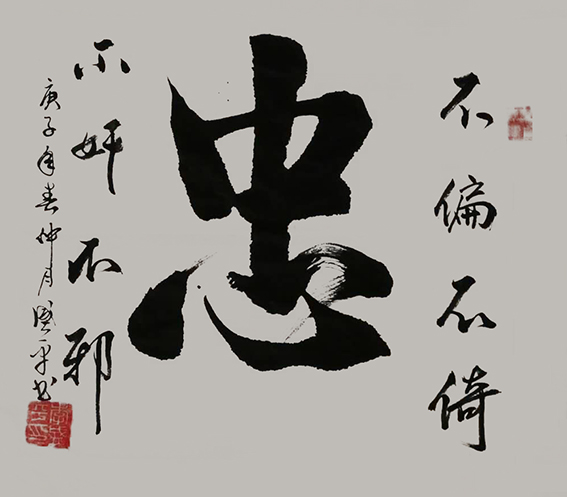 不偏不倚
忠
不奸不邪
庚子年春仲月国平书